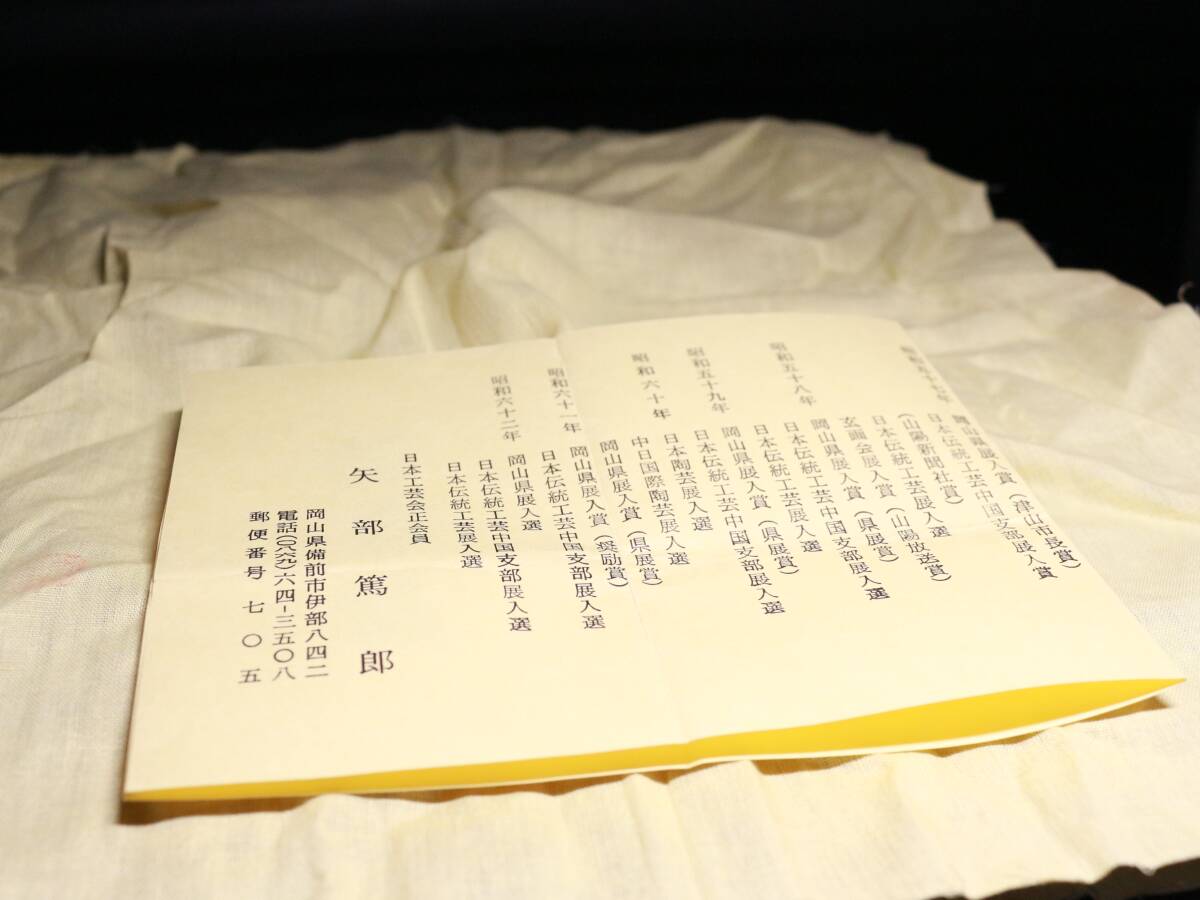 昭和五十七年
岡山県展入賞（津山市長賞）
日本伝統工芸中国支部展入賞
（山陽新聞社賞）
日本伝統工芸展入選
玄画会展入賞（山陽放送賞）
昭和五十八年
岡山県展入賞（県展賞）
日本伝統工芸中国支部展入選
日本伝統工芸展入選
昭和五十九年
岡山県展入賞（県展賞）
日本伝統工芸中国支部展入選
日本伝統工芸展入選
昭和六十年
日本陶芸展入選
中日国際陶芸展入選
岡山県展入賞（県展賞）
昭和六十一年
岡山県展入賞（奨励賞）
日本伝統工芸中国支部展入選
昭和六十二年
岡山県展入選
日本伝統工芸中国支部展入選
日本伝統工芸展入選
日本工芸会正会員
矢部篤郎
岡山県備前市伊部八四二
電話（〇八六九）六四－三五〇八
郵便番号 七〇五